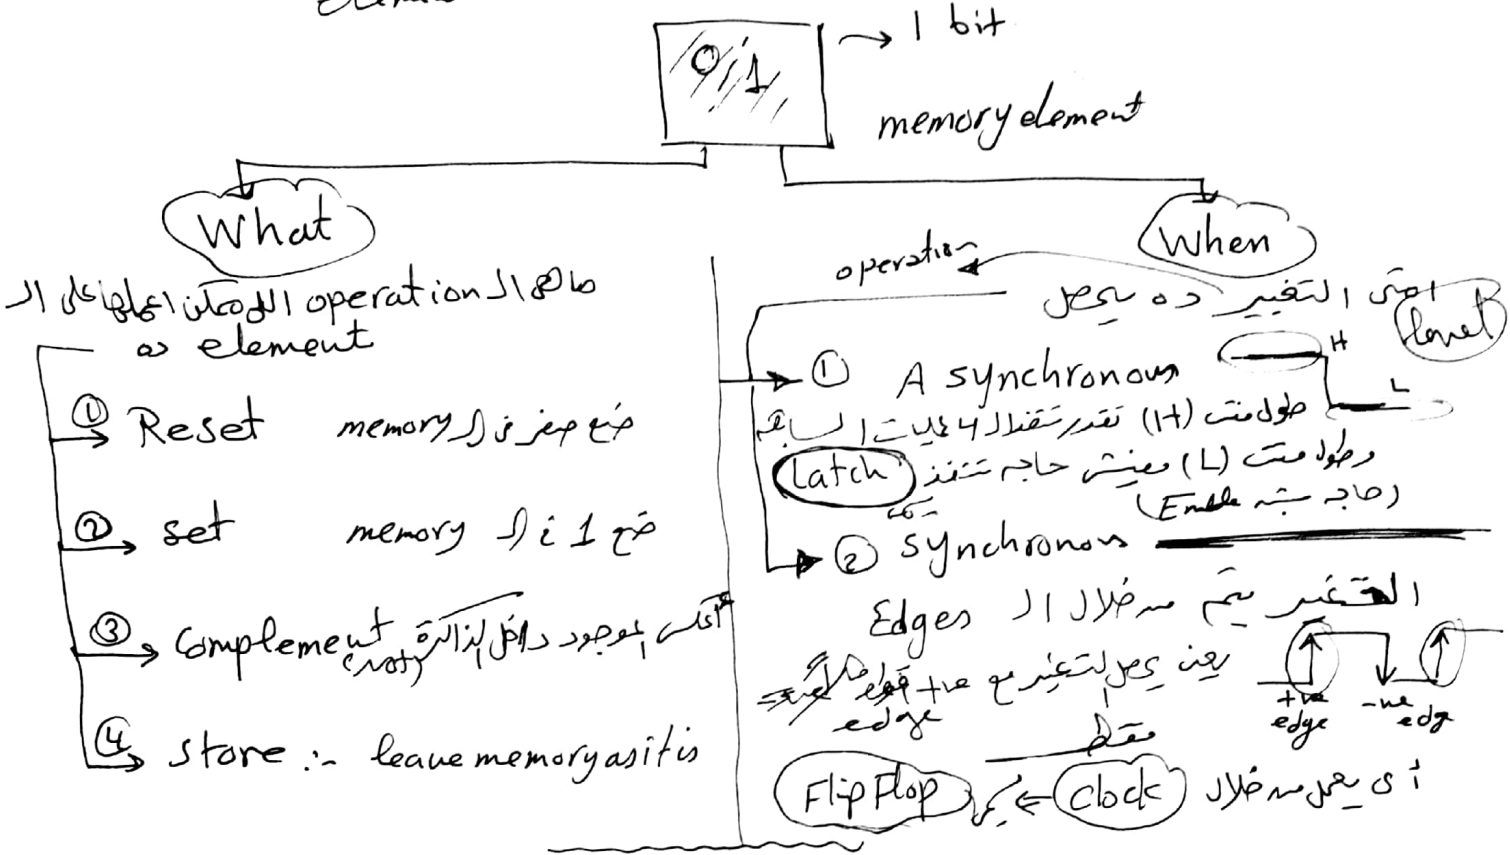 0 / 1 → 1 bit
memory element
What
ما هي ال operation اللي ممكن اعملها على ال
element ده
① Reset ضع صفر في ال memory
② set ضع 1 في ال memory
③ Complement (not) اعكس الموجود داخل الذاكرة
④ store :- leave memory as it is
When
operation
امتى التغيير ده يحصل
level
① A synchronous
H
L
طول منت (H) تقدر تنفذ ال 4 عمليات السابقة
وطول منت (L) مفيش حاجه تتنفذ
Latch
(حاجه شبه Enable)
② synchronous
التغير يتم من خلال ال Edges
يعني يحصل التغير مع +ve
edge
فقط
+ve edge
-ve edg
أي يعمل من خلال Clock ⇐
Flip Flop